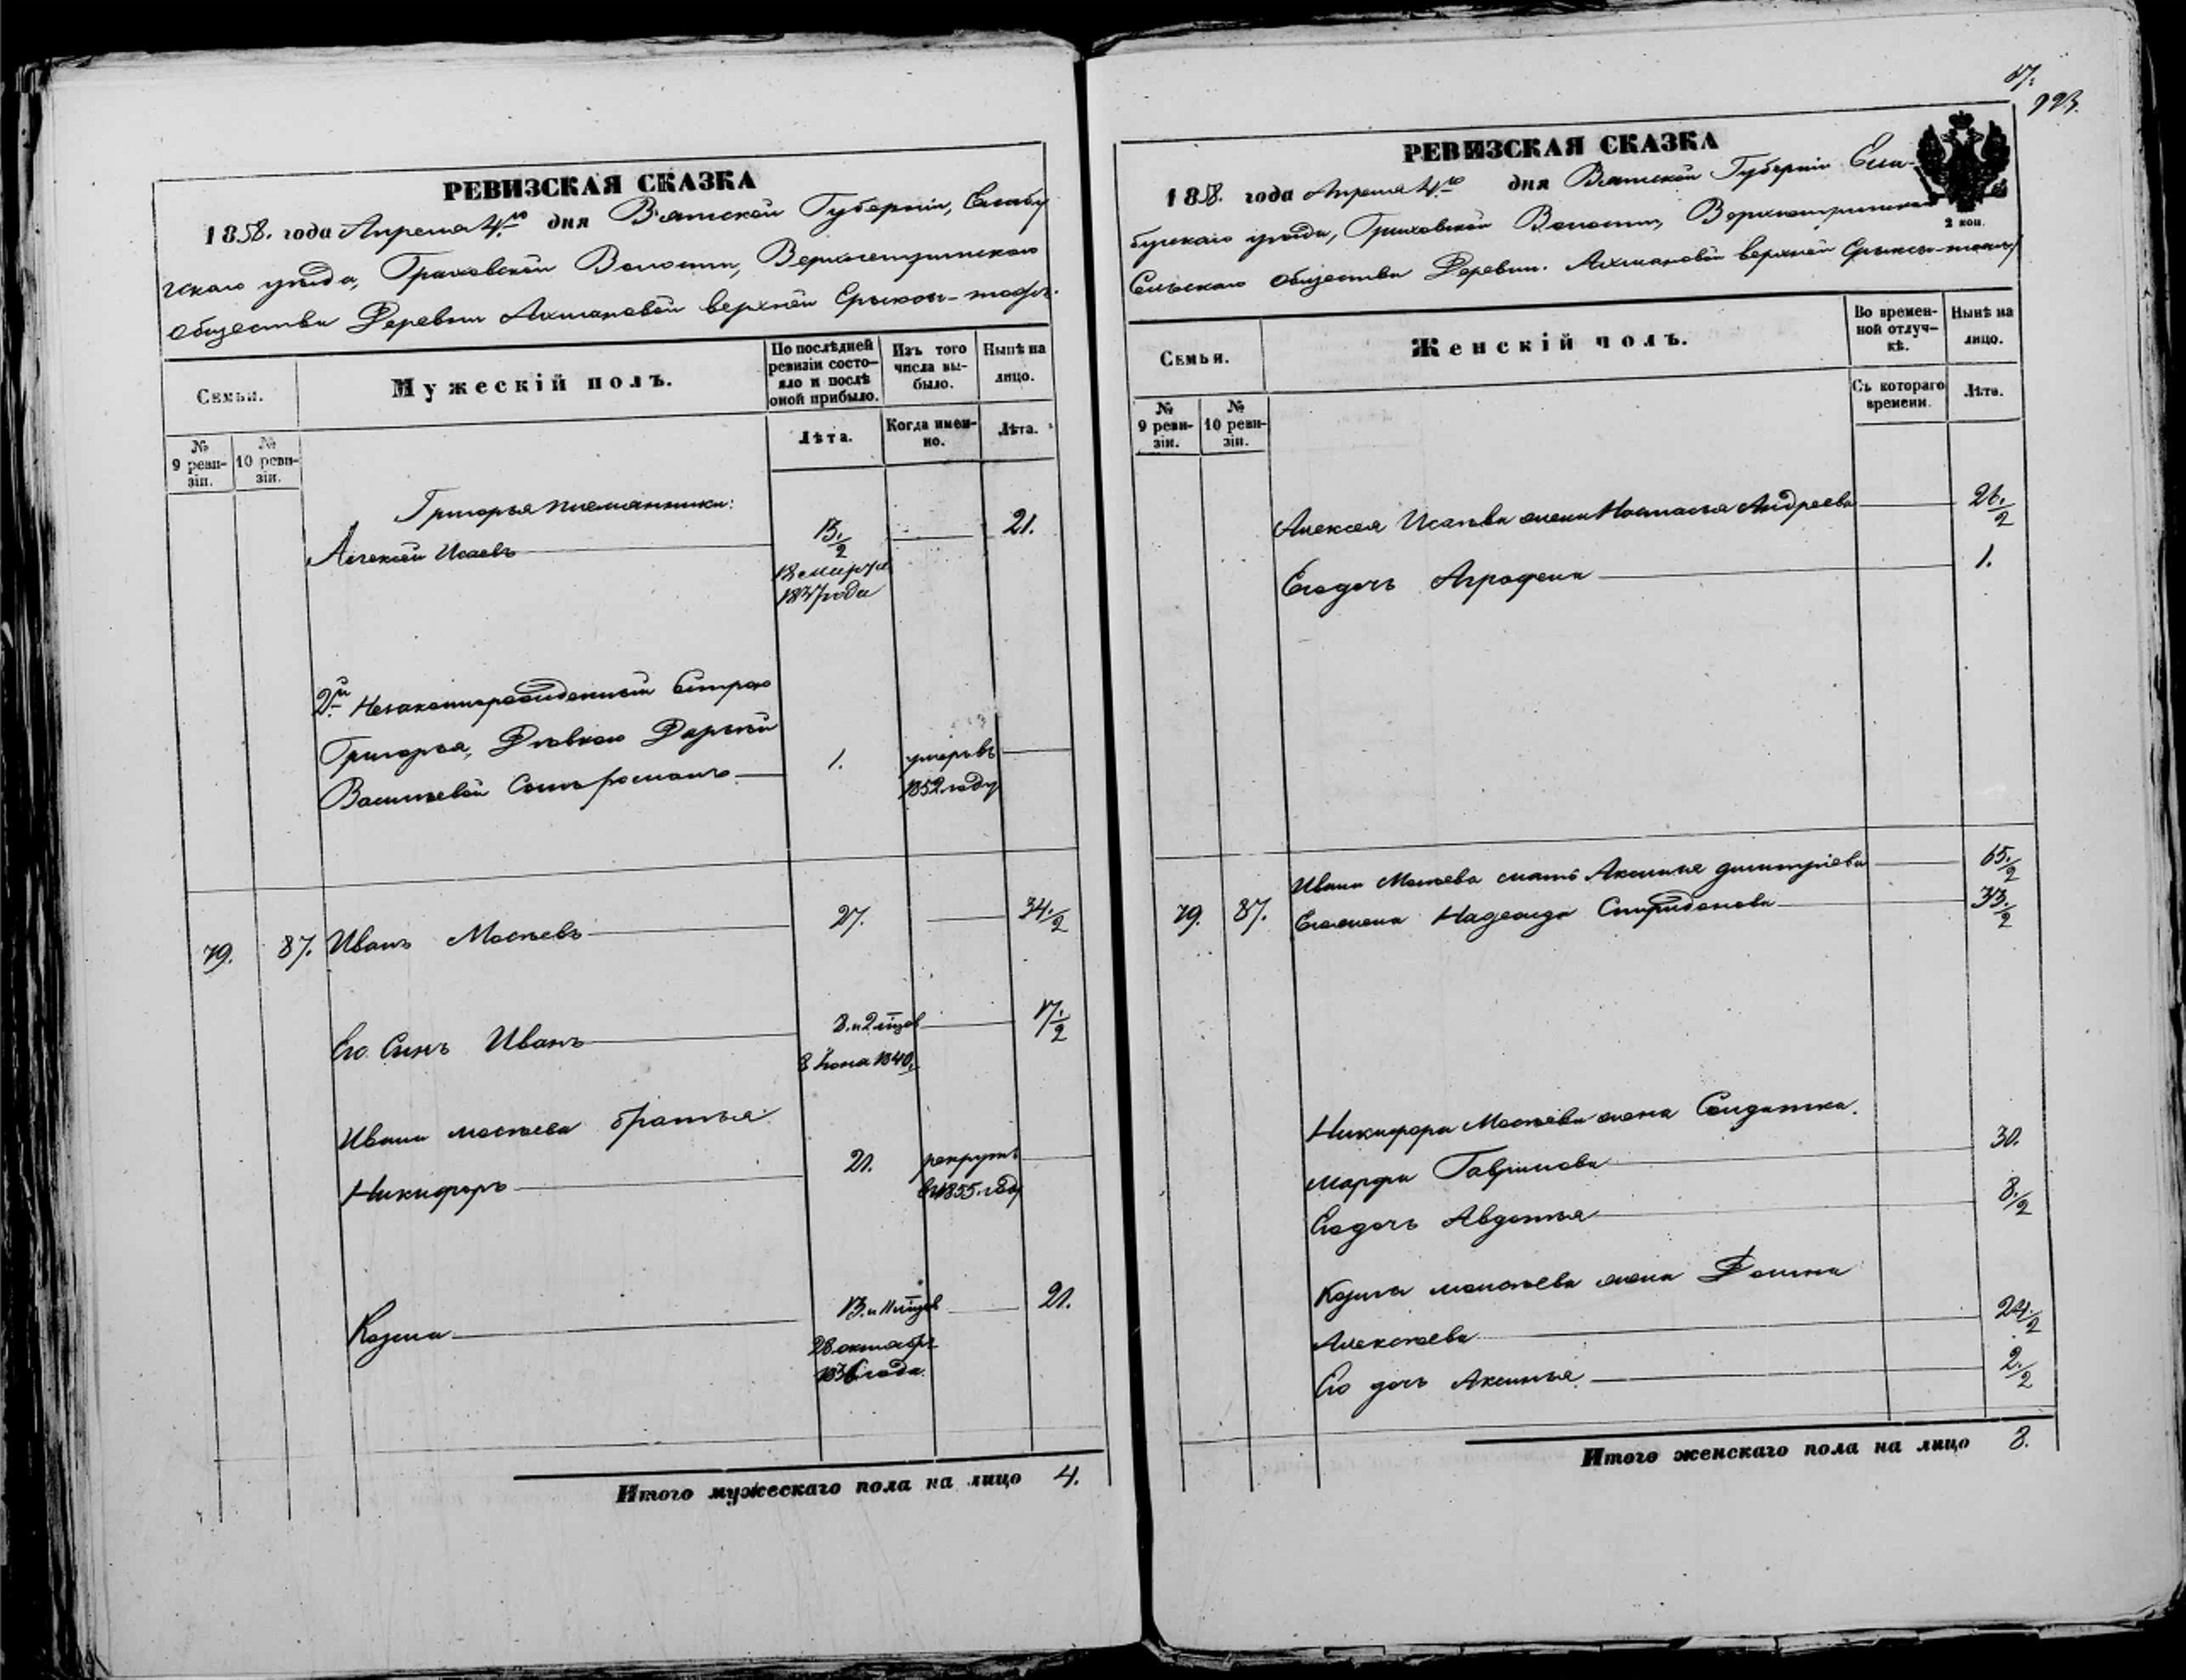 РЕВИЗСКАЯ СКАЗКА
1858. года Апреля 4го дня Вятской Губерніи, Елабу
гскаго уѣзда, Граховской Волости, Верхне
общества Деревни Ахмановой верхней
Семьи.
Мужескій полъ.
По послѣдней ревизіи состояло и послѣ оной прибыло.
Изъ того числа выбыло.
Нынѣ на лицо.
№ 9 ревизіи.
№ 10 ревизіи.
Лѣта.
Когда именно.
Лѣта.
Григорья племянники:
Алексѣй Исаевъ
13. 1/2
21.
18 марта
1837 года
2й Незаконнорожденный Сестрою
Григорья, Дѣвкою Дарьей
Васильевой Сынъ
1.
умеръ въ
1852 году
79.
87.
Иванъ Мосѣевъ
27.
34. 1/2
Его Сынъ Иванъ
8. и 2 мѣцов
17. 1/2
8 Іюня 1840 г.
Ивана мосѣева братья:
Никифоръ
21.
рекрутъ
въ 1855. году
Козма
13. и 11 мѣцов
21.
28 октября
1836 года.
Итого мужескаго пола на лицо 4.
57.
993.
РЕВИЗСКАЯ СКАЗКА
1858. года Апреля 4го дня Вятской Губерніи Ела-
бугскаго уѣзда, Граховской Волости,
2 коп.
Сельскаго общества Деревни. Ахмановой верхней
Семьи.
Женскій полъ.
Во временной отлучкѣ.
Нынѣ на лицо.
№ 9 ревизіи.
№ 10 ревизіи.
Съ котораго времени.
Лѣта.
Алексея Исаева жена Настасья Андреева
26. 1/2
Его дочь Аграфена
1.
Ивана Мосѣева мать Аксинья димитріева
65. 1/2
79.
87.
Его жена Надежда Спиридонова
33. 1/2
Никифора Мосѣева жена Солдатка.
Марфа Гаврилова
30.
Его дочь Авдотья
8. 1/2
Козмы мосѣева жена Домна
Алексѣева
24. 1/2
Его дочь Аксинья.
2. 1/2
Итого женскаго пола на лицо 8.